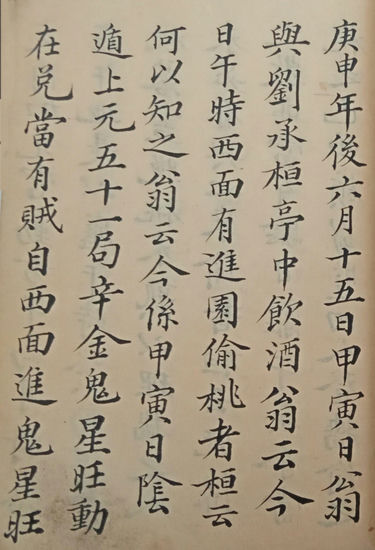 庚申年後六月十五日甲寅日翁
與劉承桓亭中飲酒翁云今
日午時西面有進園偷桃者桓云
何以知之翁云今係甲寅日陰
遁上元五十一局辛金鬼星旺動
在兌當有賊自西面進鬼星旺